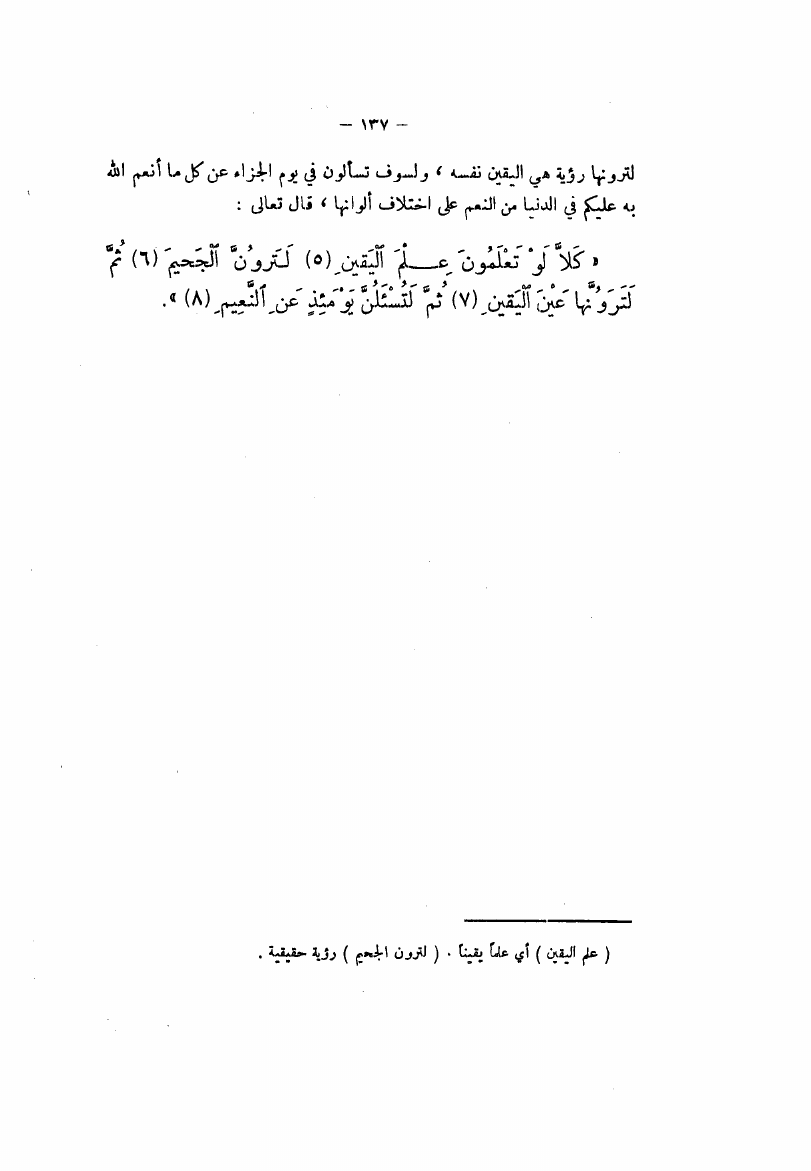 — ١٣٧ —
لترونها رؤية هي اليقين نفسه ، ولسوف تسألون في يوم الجزاء عن كل ما أنعم الله
به عليكم في الدنيا من النعم على اختلاف ألوانها ، قال تعالى :
« كَلاَّ لَوْ تَعْلَمُونَ عِلْمَ ٱلْيَقينِ (٥) لَتَروُنَّ ٱلْجَحيمَ (٦) ثُمَّ
لَتَرَوُنَّها عَيْنَ ٱلْيَقينِ (٧) ثُمَّ لَتُسْئَلُنَّ يَوْمَئِذٍ عَنِ ٱلنَّعِيمِ (٨) ».
( علم اليقين ) أي علماً يقيناً . ( لترون الجحيم ) رؤية حقيقية .